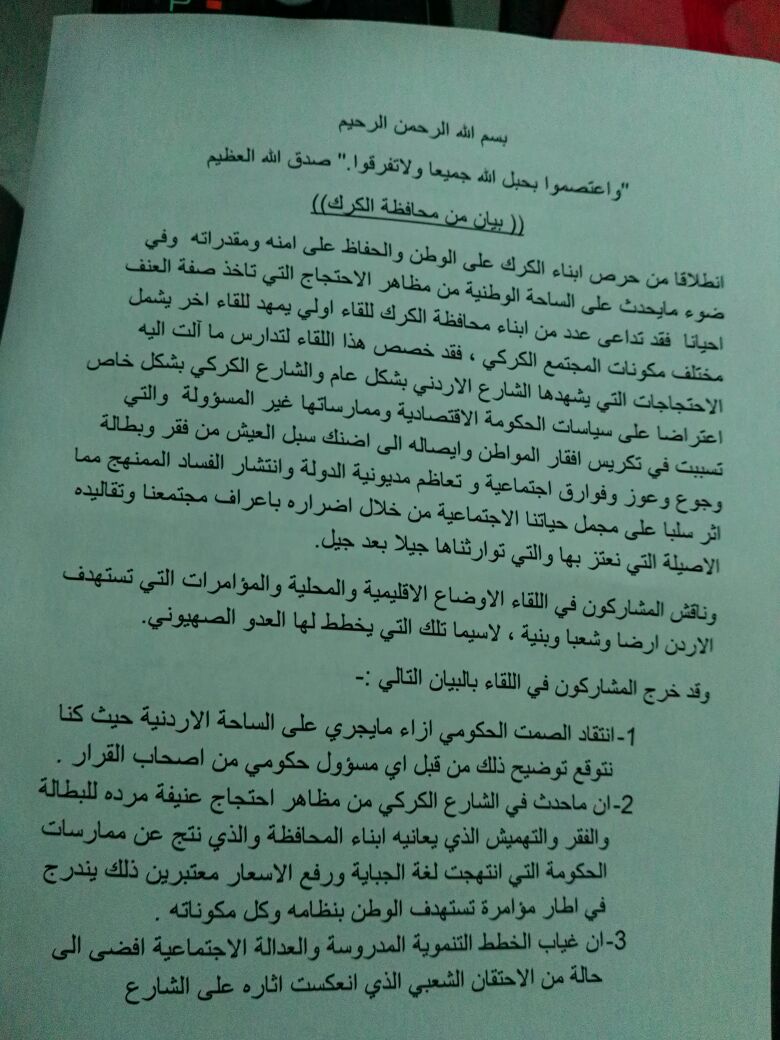 بسم الله الرحمن الرحيم
"واعتصموا بحبل الله جميعا ولاتفرقوا." صدق الله العظيم
(( بيان من محافظة الكرك))
انطلاقا من حرص ابناء الكرك على الوطن والحفاظ على امنه ومقدراته وفي
ضوء مايحدث على الساحة الوطنية من مظاهر الاحتجاج التي تاخذ صفة العنف
احيانا فقد تداعى عدد من ابناء محافظة الكرك للقاء اولي يمهد للقاء اخر يشمل
مختلف مكونات المجتمع الكركي ، فقد خصص هذا اللقاء لتدارس ما آلت اليه
الاحتجاجات التي يشهدها الشارع الاردني بشكل عام والشارع الكركي بشكل خاص
اعتراضا على سياسات الحكومة الاقتصادية وممارساتها غير المسؤولة والتي
تسببت في تكريس افقار المواطن وايصاله الى اضنك سبل العيش من فقر وبطالة
وجوع وعوز وفوارق اجتماعية و تعاظم مديونية الدولة وانتشار الفساد الممنهج مما
اثر سلبا على مجمل حياتنا الاجتماعية من خلال اضراره باعراف مجتمعنا وتقاليده
الاصيلة التي نعتز بها والتي توارثناها جيلا بعد جيل.
وناقش المشاركون في اللقاء الاوضاع الاقليمية والمحلية والمؤامرات التي تستهدف
الاردن ارضا وشعبا وبنية ، لاسيما تلك التي يخطط لها العدو الصهيوني.
وقد خرج المشاركون في اللقاء بالبيان التالي :-
1-انتقاد الصمت الحكومي ازاء مايجري على الساحة الاردنية حيث كنا
نتوقع توضيح ذلك من قبل اي مسؤول حكومي من اصحاب القرار .
2-ان ماحدث في الشارع الكركي من مظاهر احتجاج عنيفة مرده للبطالة
والفقر والتهميش الذي يعانيه ابناء المحافظة والذي نتج عن ممارسات
الحكومة التي انتهجت لغة الجباية ورفع الاسعار معتبرين ذلك يندرج
في اطار مؤامرة تستهدف الوطن بنظامه وكل مكوناته .
3-ان غياب الخطط التنموية المدروسة والعدالة الاجتماعية افضى الى
حالة من الاحتقان الشعبي الذي انعكست اثاره على الشارع